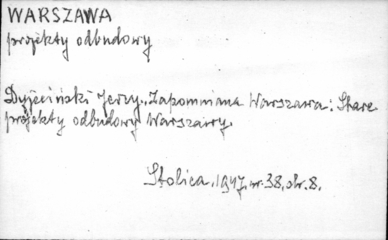 WARSZAWA
projekty odbudowy
Dyjeciński Jerzy.. Zapomniana Warszawa: Stare
projekty odbudowy Warszawy.
Stolica. 1947. nr. 38, str. 8.